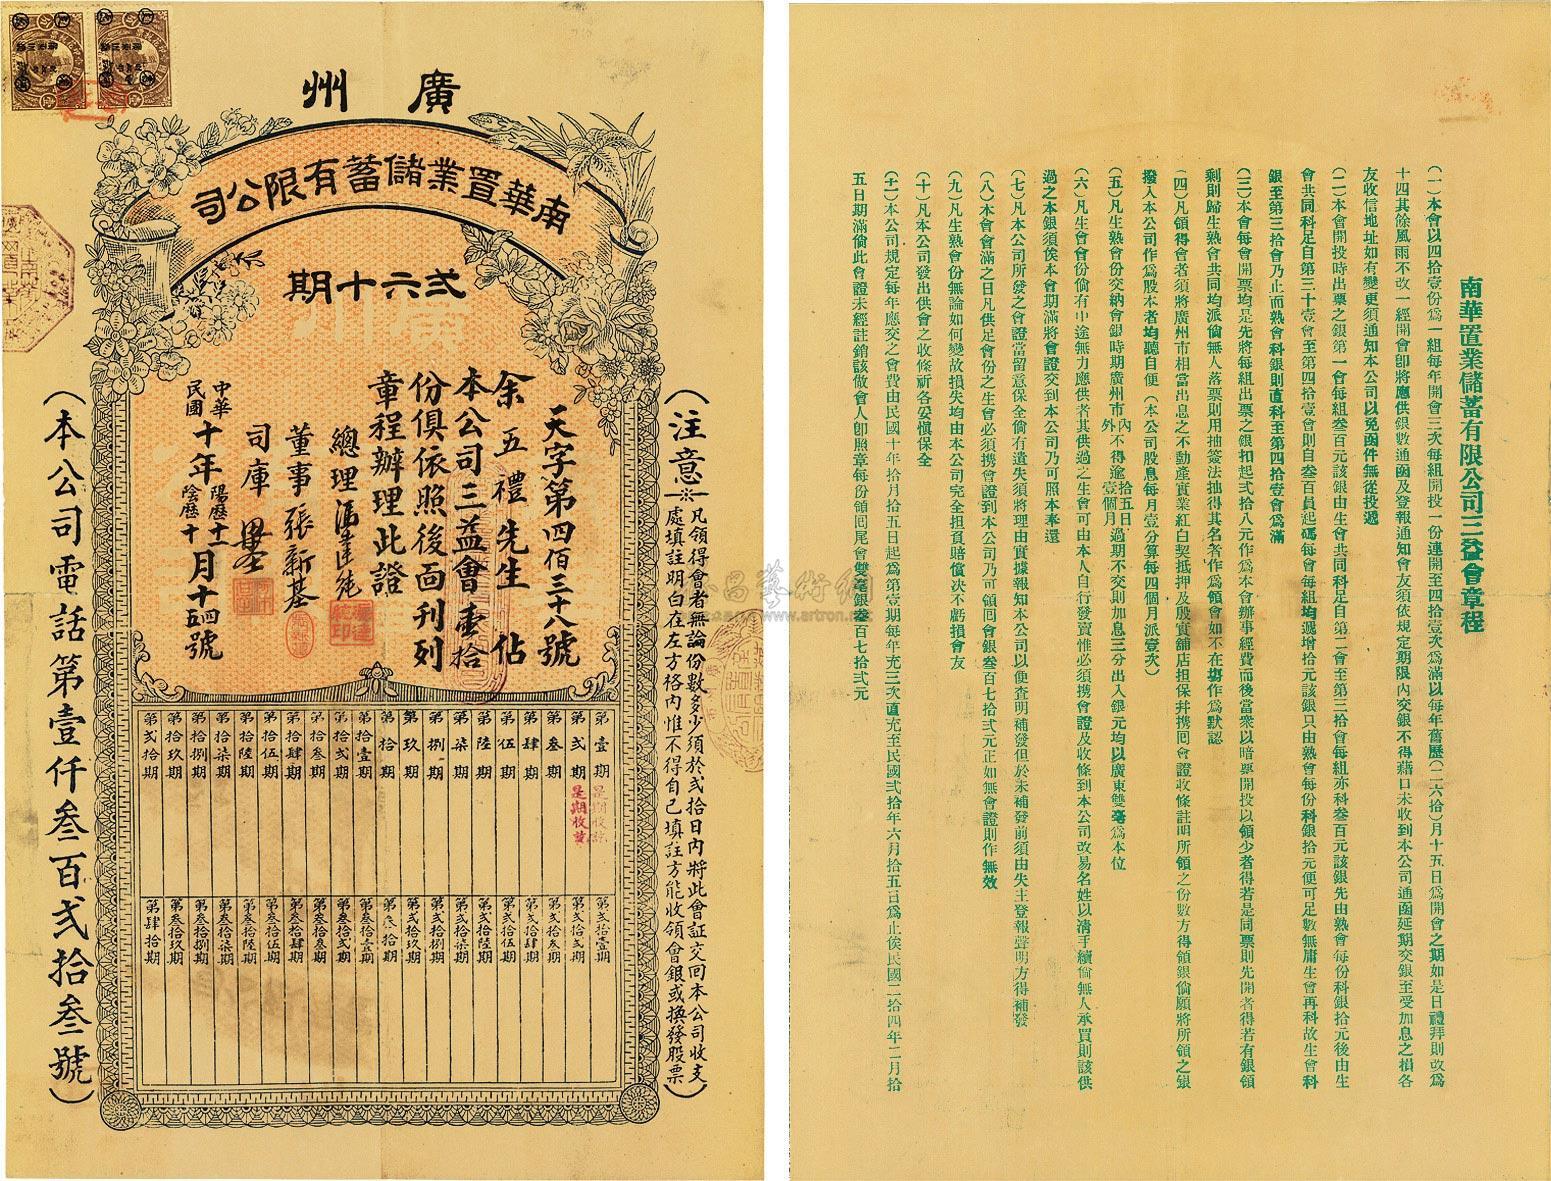 廣州
南華置業儲蓄有限公司
弍六十期
天字第四佰三十八號
余五禮先生佔
本公司三益會壹拾
份俱依照後面刋列
章程辦理此證
總理
董事張新基
司庫
中華民國十年陽歷十一陰歷十月十四五號
(注意)凡領得會者無論份數多少須於弍拾日內將此會証交回本公司收支
處填註明白在左方格內惟不得自己填註方能收領會銀或換發股票
(本公司電話第壹仟叁百弍拾叁號)
第壹期
第弍期
第叁期
第肆期
第伍期
第陸期
第柒期
第捌期
第玖期
第拾期
第拾壹期
第拾弍期
第拾叁期
第拾肆期
第拾伍期
第拾陸期
第拾柒期
第拾捌期
第拾玖期
第弍拾期
是期收訖
是期收訖
第弍拾壹期
第弍拾弍期
第弍拾叁期
第弍拾肆期
第弍拾伍期
第弍拾陸期
第弍拾柒期
第弍拾捌期
第弍拾玖期
第叁拾期
第叁拾壹期
第叁拾弍期
第叁拾叁期
第叁拾肆期
第叁拾伍期
第叁拾陸期
第叁拾柒期
第叁拾捌期
第叁拾玖期
第肆拾期
南華置業儲蓄有限公司三益會章程
(一)本會以四拾壹份爲一組每年開會三次每組開投一份連開至四拾壹次爲滿以每年舊歷(二六拾)月十五日爲開會之期如是日禮拜則改爲
十四其餘風雨不改一經開會卽將應供銀數通函及登報通知會友須依規定期限內交銀不得藉口未收到本公司通函延期交銀至受加息之損各
友收信地址如有變更須通知本公司以免函件無從投遞
(二)本會開投時出票之銀第一會每組叁百元該銀由生會共同科足自第二會至第三拾會每組亦科叁百元該銀先由熟會每份科銀拾元後由生
會共同科足自第三十壹會至第四拾壹會則自叁百員起碼每會每組均遞增拾元該銀只由熟會每份科銀拾元便可足數無庸生會再科故生會科
銀至第三拾會乃止而熟會科銀則直科至第四拾壹會爲滿
(三)本會每會開票均是先將每組出票之銀扣起弍拾八元作爲本會辦事經費而後當衆以暗票開投以領少者得若是同票則先開者得若有銀領
剩則歸生熟會共同均派倘無人落票則用抽簽法抽得其名者作爲領會如不在塲作爲默認
(四)凡領得會者須將廣州市相當出息之不動產實業紅白契抵押及殷實舖店担保幷携囘會證收條註明所領之份數方得領銀倘願將所領之銀
撥入本公司作爲股本者均聽自便(本公司股息每月壹分算每四個月派壹次)
(五)凡生熟會份交納會銀時期廣州市內外不得逾拾五日壹個月過期不交則加息三分出入銀元均以廣東雙毫爲本位
(六)凡生會會份倘有中途無力應供者其供過之生會可由本人自行發賣惟必須携會證及收條到本公司改易名姓以淸手續倘無人承買則該供
過之本銀須俟本會期滿將會證交到本公司乃可照本奉還
(七)凡本公司所發之會證當留意保全倘有遺失須將理由實據報知本公司以便查明補發但於未補發前須由失主登報聲明方得補發
(八)本會會滿之日凡供足會份之生會必須携會證到本公司乃可領囘會銀叁百七拾弍元正如無會證則作無效
(九)凡生熟會份無論如何變故損失均由本公司完全担負賠償决不虧損會友
(十)凡本公司發出供會之收條祈各妥愼保全
(十一)本公司規定每年應交之會費由民國十年拾月拾五日起爲第壹期每年充三次直充至民國弍拾年六月拾五日爲止俟民國二拾四年二月拾
五日期滿倘此會證未經註銷該做會人卽照章每份領囘尾會雙毫銀叁百七拾弍元
www.artron.net